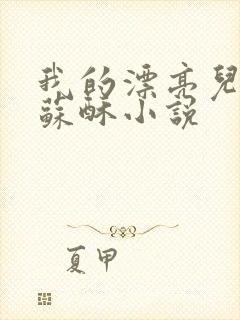 我的漂亮兒
蘇酥小說
夏甲